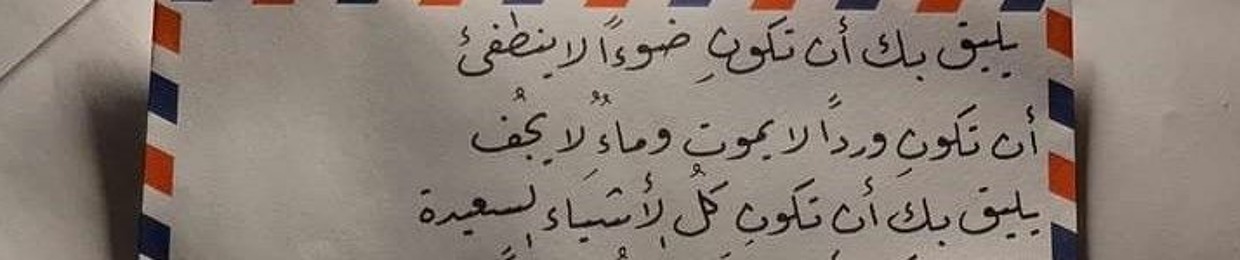 يليق بك أن تكونِ ضوءاً لا ينطفئ
أن تكونِ ورداً لا يموت وماءٌ لا يجُف
يليق بك أن تكونِ كلُ لأشياء لسعيدة